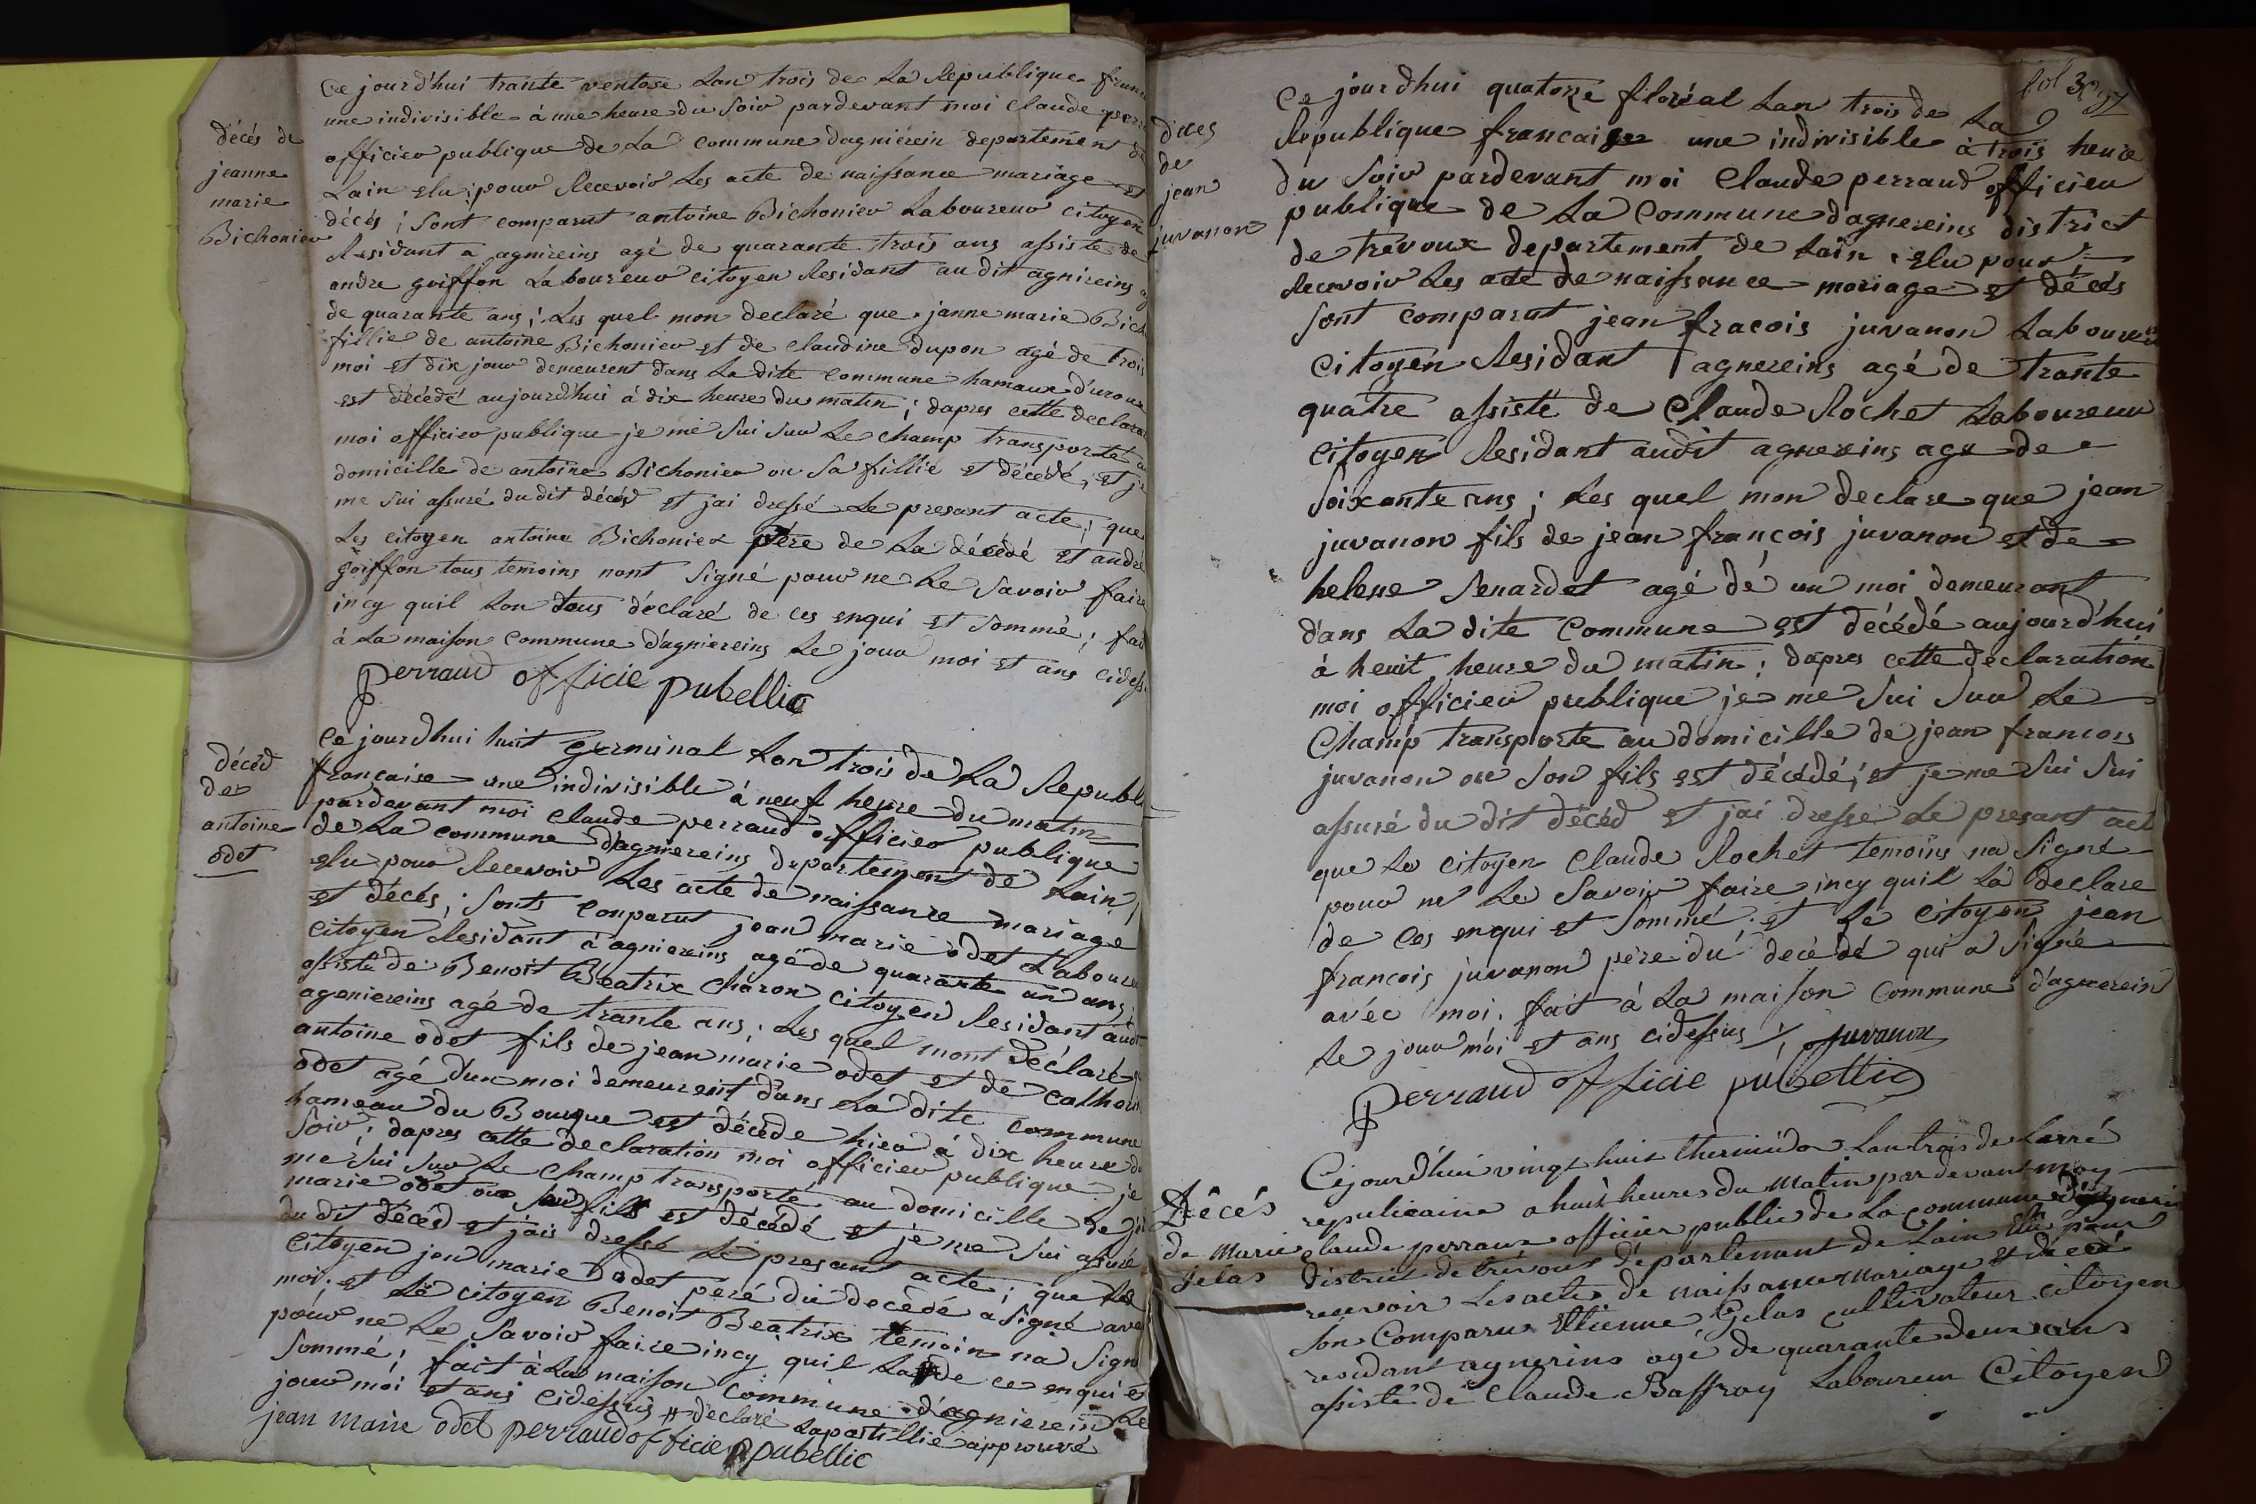 décés de
jeanne
marie
Bichonier
Ce jourd'hui trante ventose Lan trois de La Republique
une indivisible à une heure du Soir pardevant moi Claude
officier publique de La Commune dagniérein departement
Lain elu pour Recevoir Les acte de naissance mariage et
décés ; Sont comparut antoine Bichonier Laboureur citoyen
Residant a agnireins agé de quarante trois ans assisté de
andre goiffon Laboureur citoyen Residant au dit agnireins
de quarante ans ; Les quel mon declaré que janne marie
fillie de antoine Bichonier et de claudine dupon agé de trois
moi et dix jour demeurent dans La dite Commune hamaux
est décédé aujourd'hui à dix heure du matin ; dapres cette
moi officier publique je me Sui Sur Le champ transporté
domicille de antoine Bichonier ou Sa fillie et décédé, et je
me Sui assuré du dit décéd et jai dressé Le presant acte ; que
Les citoyen antoine Bichonier pére de La décédé et andré
goiffon tous temoins nont Signé pour ne Le Savoir faire
incy quil Lon tous déclaré de ces enqui et Sommé ;
à La maison Commune d'agniereins Le jour moi et ans
perraud officie pubellic
décéd
de
antoine
odet
Ce jourd'hui huit germinal Lan trois de La
française une indivisible à neuf heure du matin
pardevant moi claude perraud officier publique
de La commune d'agniereins departement de Lain,
elu pour Recevoir Les acte de naissance mariage
et décés ; Sont conparut jean marie odet
citoyen Residant à agniereins agé de quarante un ans ;
assisté de Benoit Beatrix charon citoyen Residant
agniereins agé de trante ans ; Les quel mont déclaré
antoine odet fils de jean marie odet et de
odet agé d'un moi demeurent dans La dite commune
hameau du Bourque est décédé hier à dix heure
Soir ; dapres cette declaration moi officier publique je
me Sui Sur Le Champ transporté au domicille de
marie odet ou Son fils est décédé et je me Sui assuré
du dit décéd et jais dressé Le presant acte ; que Les
citoyen jean marie odet peré du decédé a Signé
moi ; et Le citoyen Benoit Beatrix temoin na
pour ne Le Savoir faire incy quil La # de ce enqui
Sommé ; fait à La maison Commune d'agnierein Le
jour moi et ans cidessus # declaré Lapostillie approuvé
jean marie odet perraud officie pubellic
fol
déces
de
jean
juvanon
Ce jourdhui quatorze floréal Lan trois de La
Republique francaise une indivisible à trois heure
du Soir pardevant moi Claude perraud officieu
publique de La Commune dagnereins district
de trevoux departement de Lain elu pour
Recevoir Les acte de naissance mariage et décés
Sont comparut jean fracois juvanon
citoyen Residant agnereins agé de trante
quatre assisté de Claude Rochet Laboureur
citoyen Residant audit agnereins age de
Soixante ans ; Les quel mon declare que jean
juvanon fils de jean françois juvanon et de
helene Senardet agé dé un moi demeurant
dans La dite Commune est décédé aujourd'hui
à heuit heure du matin ; dapres cette declaration
moi officier publique je me Sui Sur Le
Champ transporte au domicille de jean francois
juvanon ou Son fils est décédé ; et je me Sui Sui
assuré du dit décéd et jai dresse Le presant
que Le citoyen Claude Rochet temoins na Signé
pour ne Le Savoir faire incy quil La declare
de ces enqui et Sommé ; et Le citoyen jean
francois juvanon père du decédé qui a Signé
avéc moi ; fait à La maison Commune d'agnerein
Le jour moi et ans cidessus juvanon
perraud officie pubellic
Décés
de Marie
Jelas
Cejourd'hui vingt huit thermidor Lan trois de Larré
republicaine a huit heures du Matin par devant moy
claude perraux officier public de La commune
district de trévoux département de Lain Elu pour
recevoir Les actes de naissance mariage et décé
Son Comparu Etienne Gelas cultivateur citoyen
residant agnerins agé de quarante deux ans
assisté de Claude Baffroy Laboureur Citoyen